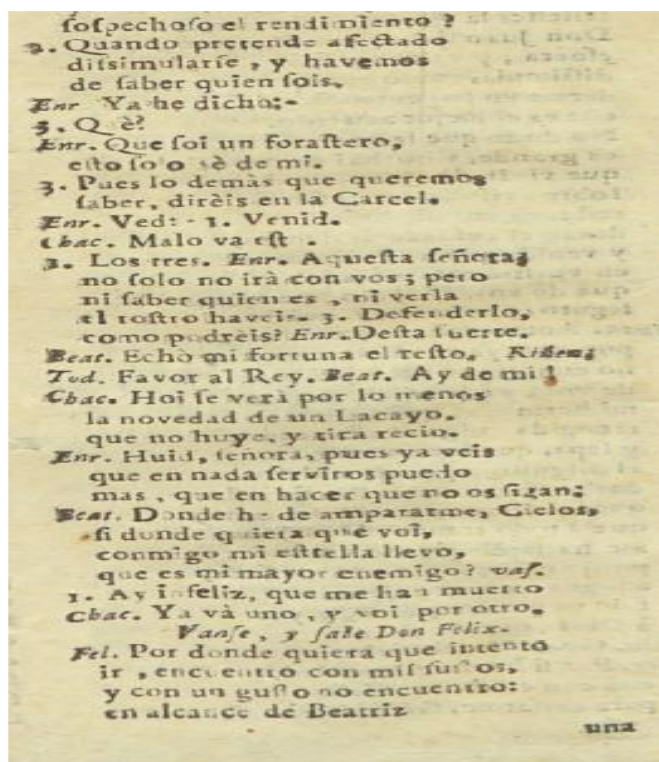 ſoſpechoſo el rendimiento?
2. Quando pretende afectado
diſsimularſe, y havemos
de ſaber quien ſois.
Enr Ya he dicho:-
3. Q è?
Enr. Que ſoi un foraſtero,
eſto ſolo sè de mi.
3. Pues lo demàs que queremos
ſaber, dirèis en la Carcel.
Enr. Ved:- 1. Venid.
Chac. Malo va eſt .
3. Los tres. Enr. Aqueſta ſeñora;
no ſolo no irà con vos; pero
ni ſaber quien es, ni verla
el roſtro haveis. 3. Defenderlo,
como podrèis? Enr. Deſta ſuerte.
Beat. Echò mi fortuna el reſto. Riñen;
Tod. Favor al Rey. Beat. Ay de mi!
Chac. Hoi ſe verà por lo menos
la novedad de un Lacayo.
que no huye, y tira recio.
Enr. Huid, ſeñora, pues ya veis
que en nada ſerviros puedo
mas, que en hacer que no os ſigan;
Beat. Donde h- de ampararme, Cielos,
ſi donde quiera que voi,
conmigo mi eſtrella llevo,
que es mi mayor enemigo? vaſ.
1. Ay infeliz, que me han muerto
Chac. Ya và uno, y voi por otro.
Vanſe, y ſale Don Felix.
Fel. Por donde quiera que intento
ir, encuentro con miſ ſuſtos,
y con un guſto no encuentro:
en alcance de Beatriz
una